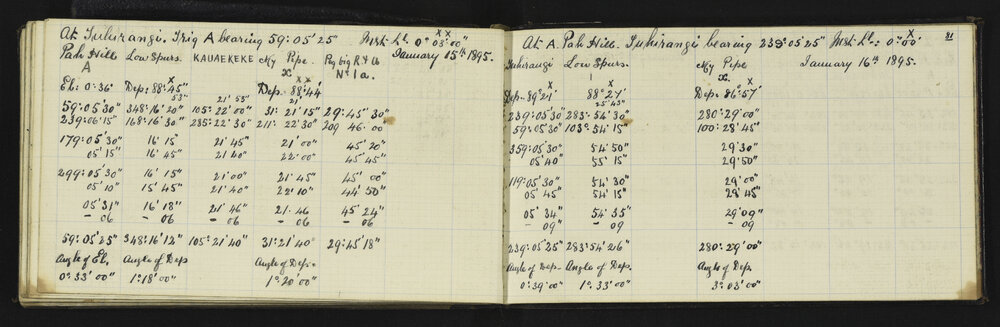 At Tuhirangi. Trig A bearing 59: 05' 25" Inst. ht. 0° 03' 00"
January 15th 1895.
Pah Hill A Low Spurs. KAUAEKEKE My Pipe x. Pig big R + Ub No. 1a.
El: 0°36' Dep: 88°45' Dep: 88°44
53" 21' 55" 21'
59:05'30" 348:16'20" 105:22'00" 31:21'15" 29:45'30"
239:06'15" 168:16'30" 285:22'30" 211:22'30" 209 46.00"
179:05'30" 16'15 21'45" 21'00" 45'20"
05'15" 16'45" 21'40" 22'00" 45'45"
299:05'30" 16'15" 21'00" 21'45" 45'00"
05'10" 15'45" 21'40" 22'10" 44'50"
05'31" 16'18" 21'46" 21.46 45'24"
- 06 - 06 - 06 - 06 - 06
59:05'25" 348:16'12" 105:21'40" 31:21'40" 29:45'18"
Angle of El. Angle of Dep Angle of Dep.
0°33'00" 1°18'00" 1°20'00"
At A. Pah Hill. Tuhirangi bearing 239:05'25" Inst. ht.: 0°00'
81
January 16th 1895.
Tuhirangi Low Spurs. My Pipe x.
Dep: 89°21' 88°27' Dep: 86°57'
25'43"
239:05'30" 283:54'30" 280:29'00"
59:05'30" 103:54'15" 100:28'45"
359:05'30" 54'50" 29'30"
05'40" 55'15" 29'50"
119:05'30" 54'30" 29'00"
05'45" 54'15" 28'45"
05'34" 54'35" 29'09"
- 09" - 09" - 09
239:05'25" 283:54'26" 280:29'00"
Angle of Dep. Angle of Dep. Angle of Dep.
0°39'00" 1°33'00" 3°03'00"